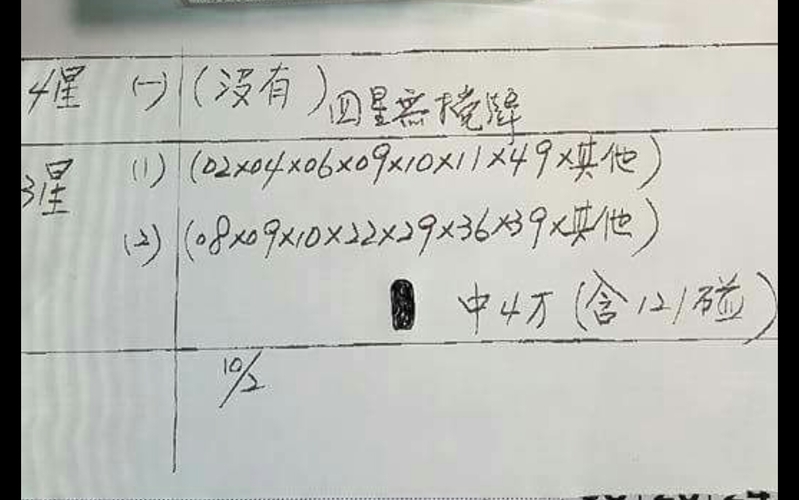 4星 (一) (没有) 四星無擋牌
3星 (1) (02×04×06×09×10×11×49×其他)
(2) (08×09×10×22×29×36×39×其他)
中4万 (含121碰)
10/2